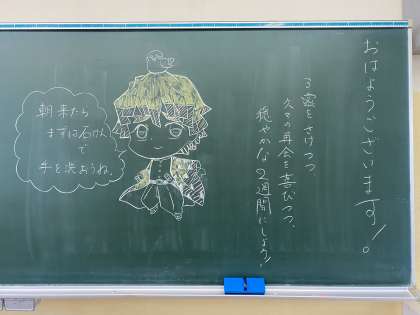 おはようございます！。
3密をさけつつ
久々の再会を喜びつつ、
穏やかな2週間にしよう！
朝来たら
まずは石けん
で
手を洗おうね。